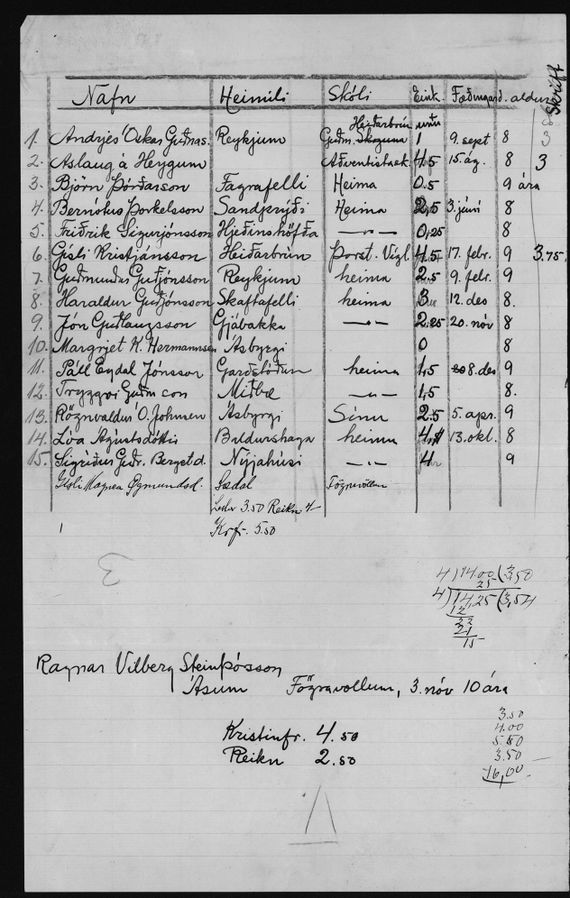 Skrift
Nafn Heimili Skóli Eink. Fæðingard. aldur
Heiðarbrún
1. Andrjes Óskar Guðnas. Reykjum Guðm. 1 9. sept 8 3
2. Aslaug á Heygum Adventistask. 4.5 15 ág. 8 3
3. Björn Þórðarson Fagrafelli Heima 0.5 9 ára
4. Bernótus Þorkelsson Sandprýði Heima 2,5 3. júní 8
5. Friðrik Sigurjónsson Hjeðinshöfða -„- 0,25 8
6. Gísli Kristjánsson Heiðarbrún Þorst. Vígl. 4.5 17. febr. 9 3.75
7. Guðmundur Guðjónsson Reykjum heima 2.5 9. febr. 9
8. Haraldur Guðjónsson Skaftafelli heima 3 12. des 8.
9. Jón Guðlaugsson Gjábakka -„- 2.25 20. nóv 8
10. Margrjet K. Hermannsen Ásbyrgi 0 8
11. Páll Eydal Jónsson Garðstöðum heima 1,5 8. des 9
12. Tryggvi Guðm son Miðbæ -„- 1,5 8.
13. Rögnvaldur Ó. Johnsen Ásbyrgi Sínu 2.5 5. apr. 9
14. Lóa Ágústsdóttir heima 4, 13. okt. 8
15. Sigríður Guðr. Bergst d. Nýjahúsi -„- 4 9
Magnea Ögmundsd. Fögruvöllum
3.50 Reikn 4
Krf. 5.50
3
4)14.00(3,50
25
4)14,25(3,54
12
22
21
15
Ragnar Vilberg Steinþósson
Ásum Fögruvollum, 3. nóv 10 ára
Kristinfr. 4.50
Reikn 2.50
3.50
4.00
5.50
3.50
16,00